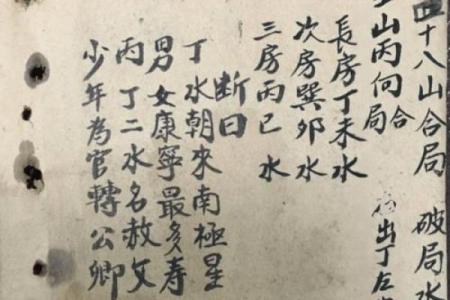 十八山合局 破局水
山丙向合局
出丁左
長房丁未水
次房巽卯水
三房丙巳水
断曰
丁水朝來南極星
男女康寧最多寿
丙丁二水名赦文
少年為官轉公卿